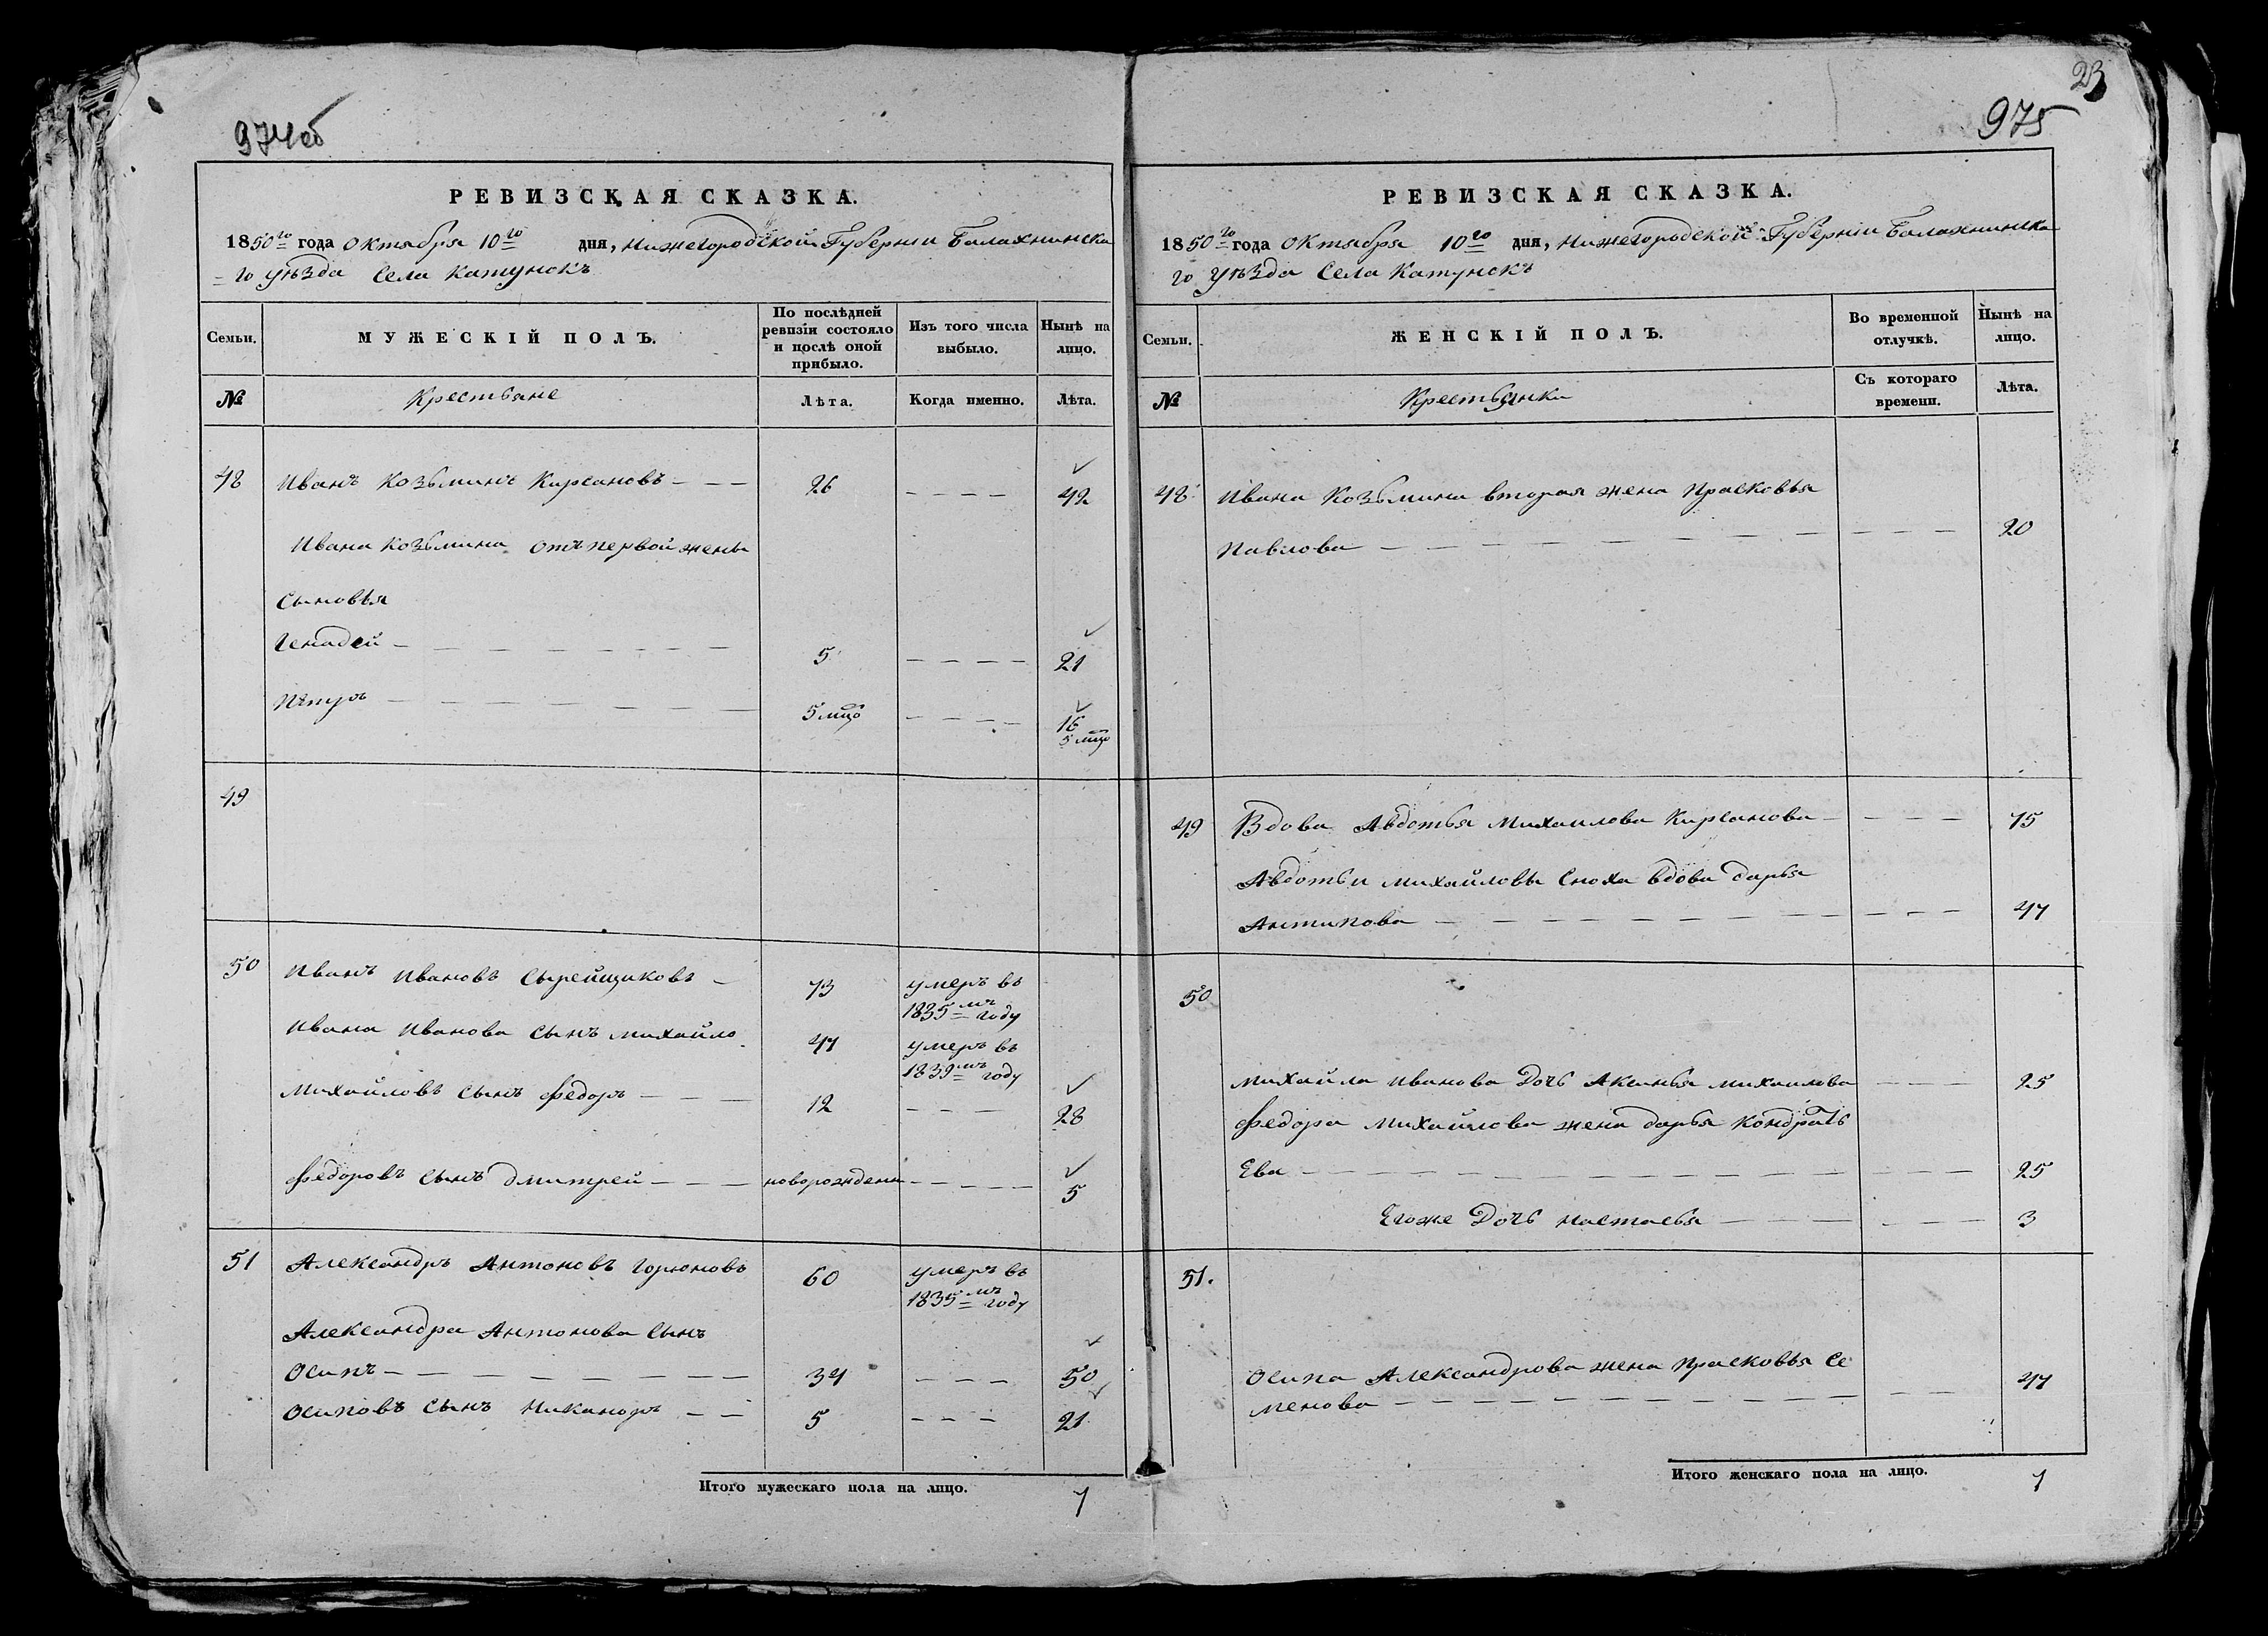 974об
РЕВИЗСКАЯ СКАЗКА.
1850го года Октября 10го дня, Нижегородской Губерніи Балахнинска
го Уѣзда Села Катунокъ
Семьи.
МУЖЕСКІЙ ПОЛЪ.
По послѣдней ревизіи состояло и послѣ оной прибыло.
Изъ того числа выбыло.
Нынѣ на лицо.
№
Крестьяне
Лѣта.
Когда именно.
Лѣта.
48 Иванъ Козьминъ Кирсановъ — — — 26 — — — — 42
Ивана Козьмина отъ первой жены
Сыновья
Генадей — — — — — — — 5 — — — — 21
Пѣтръ — — — — — — — 5 мцо — — — — 16
5 мцо
49
50 Иванъ Ивановъ Сырейщиковъ — 73 умеръ въ
1835мъ году
Ивана Иванова Сынъ Михайло 47 умеръ въ
1839мъ году
Михайловъ Сынъ Федоръ — — — 12 — — — 28
Федоровъ Сынъ Дмитрей — — — новорожденн — — — — — 5
51 Александръ Антоновъ Горюновъ 60 умеръ въ
1835мъ году
Александра Антонова Сынъ
Осипъ — — — — — — — — 34 — — — 50
Осиповъ Сынъ Никаноръ — — 5 — — — 21
Итого мужескаго пола на лицо. 7
23
975
РЕВИЗСКАЯ СКАЗКА.
1850го года Октября 10го дня, Нижегородской Губерніи Балахнинска
го Уѣзда Села Катунокъ
Семьи.
ЖЕНСКІЙ ПОЛЪ.
Во временной отлучкѣ.
Нынѣ на лицо.
№
Крестьянки
Съ котораго времени.
Лѣта.
48. Ивана Козьмина вторая жена Прасковья
Павлова — — — — — — — — — — — — — 20
49 Вдова Авдотья Михаилова Кирсанова — — — — 75
Авдотьи Михайловы Сноха вдова Дарья
Антипова — — — — — — — — — — — — 47
50
Михайла Иванова Дочь Аксинья Михаилова — — — 25
Федора Михайлова жена Дарья Кондрать
Ева — — — — — — — — — — — — — 25
Егоже Дочь Настасья — — — — — — 3
51.
Осипа Александрова жена Прасковья Се
менова — — — — — — — — — — — — 47
Итого женскаго пола на лицо. 7